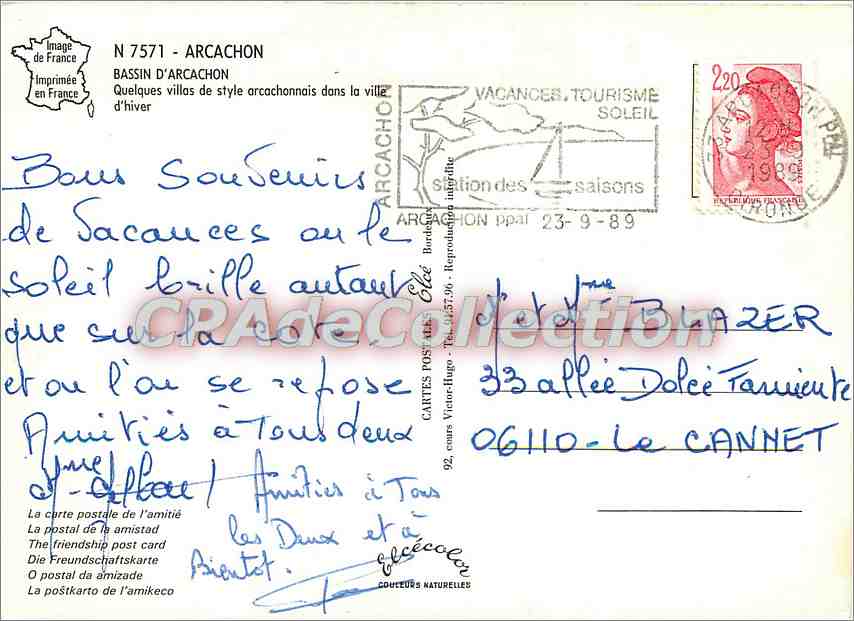 Image
de France
Imprimée
en France
N 7571 - ARCACHON
BASSIN D'ARCACHON
Quelques villas de style arcachonnais dans la ville
d'hiver
ARCACHON
VACANCES. TOURISME
SOLEIL
station des saisons
ARCACHON ppal 23-9-89
2,20
REPUBLIQUE FRANÇAISE
ARCACHON PPAL
23
1989
GIRONDE
Bons Souvenirs
de Vacances ou le
soleil brille autant
que sur la cote.
et ou l'on se repose
Amitiés à Tous deux
Amities à Tous
les Deux et à
Bientot.
La carte postale de l'amitié
La postal de la amistad
The friendship post card
Die Freundschaftskarte
O postal da amizade
La poŝtkarto de l'amikeco
CARTES POSTALES Elcé Bordeaux
92, cours Victor-Hugo - Tél. 91.57.96 - Reproduction interdite
Elcécolor
COULEURS NATURELLES
CPAdeCollection
Mr et Mme BLAZER
33 allée Dolcé Farniente
06110 - Le CANNET